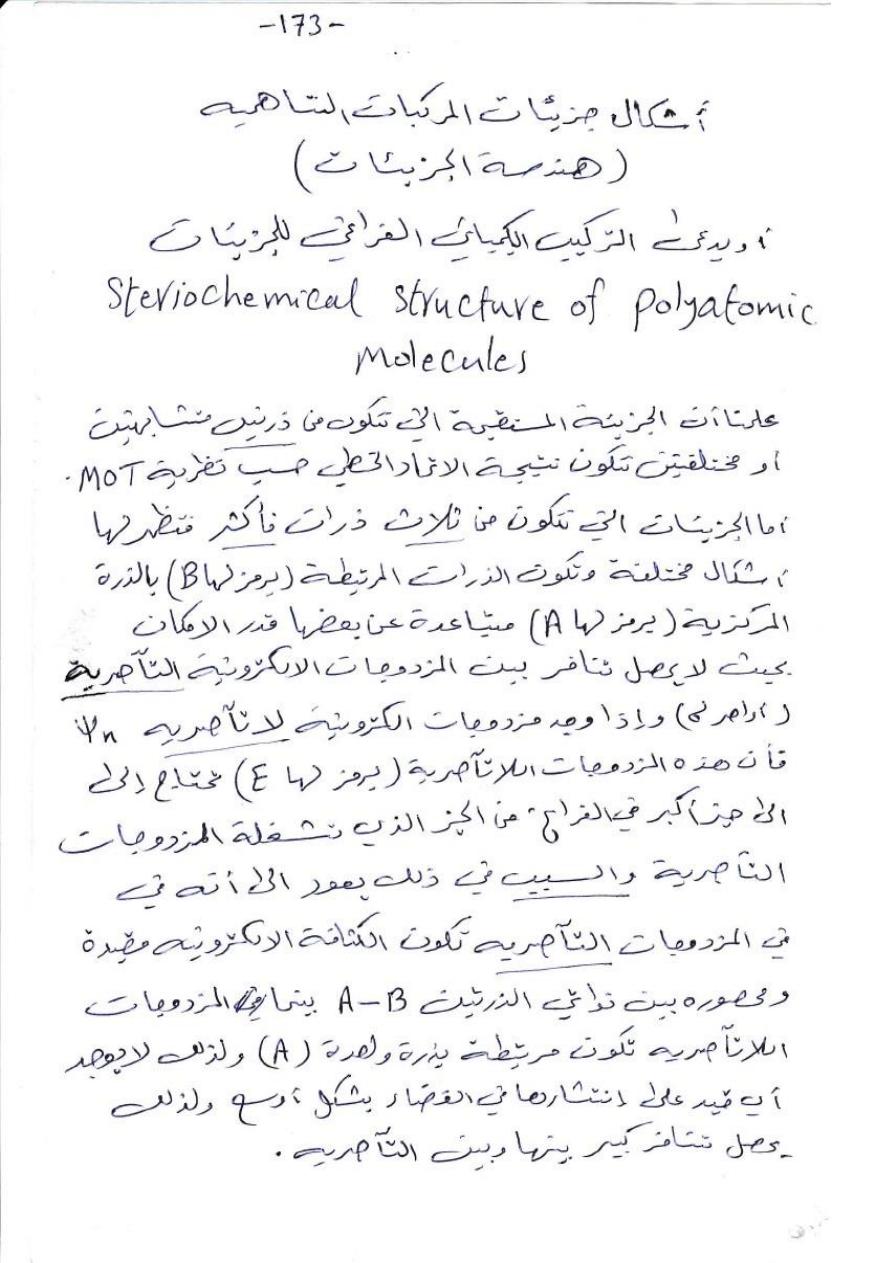 -173-
أشكال جزيئات المركبات التساهمية
(هندسة الجزيئات)
أو يدعى التركيب الكيميائي الفراغي للجزيئات
Steriochemical structure of polyatomic
Molecules
علمنا أن الجزيئة المستقيمة التي تتكون من ذرتين متشابهتين
أو مختلفتين تتكون نتيجة الاتحاد الخطي حسب نظرية MOT.
أما الجزيئات التي تتكون من ثلاث ذرات فأكثر فتظهر لها
أشكال مختلفة وتكون الذرات المرتبطة (يرمز لها B) بالذرة
المركزية (يرمز لها A) متباعدة عن بعضها قدر الامكان
بحيث لا يحصل تنافر بين المزدوجات الالكترونية التآصرية
وإذا وجد مزدوجات الكترونية لا تآصريه Ψn
فأن هذه المزدوجات اللاتآصرية (يرمز لها E) تحتاج إلى
الى حيز أكبر في الفراغ من الحيز الذي تشغلة المزدوجات
التآصرية والسبب في ذلك يعود الى أنه في
في المزدوجات التآصريه تكون الكثافة الالكترونيه مقيدة
ومحصوره بين نواتي الذرتين A-B بينما في المزدوجات
اللاتآصريه تكون مرتبطة بذرة واحدة (A) ولذلك لا يوجد
أي قيد على إنتشارها في الفضاء بشكل أوسع ولذلك
يحصل تنافر كبير بينها وبين التآصريه.